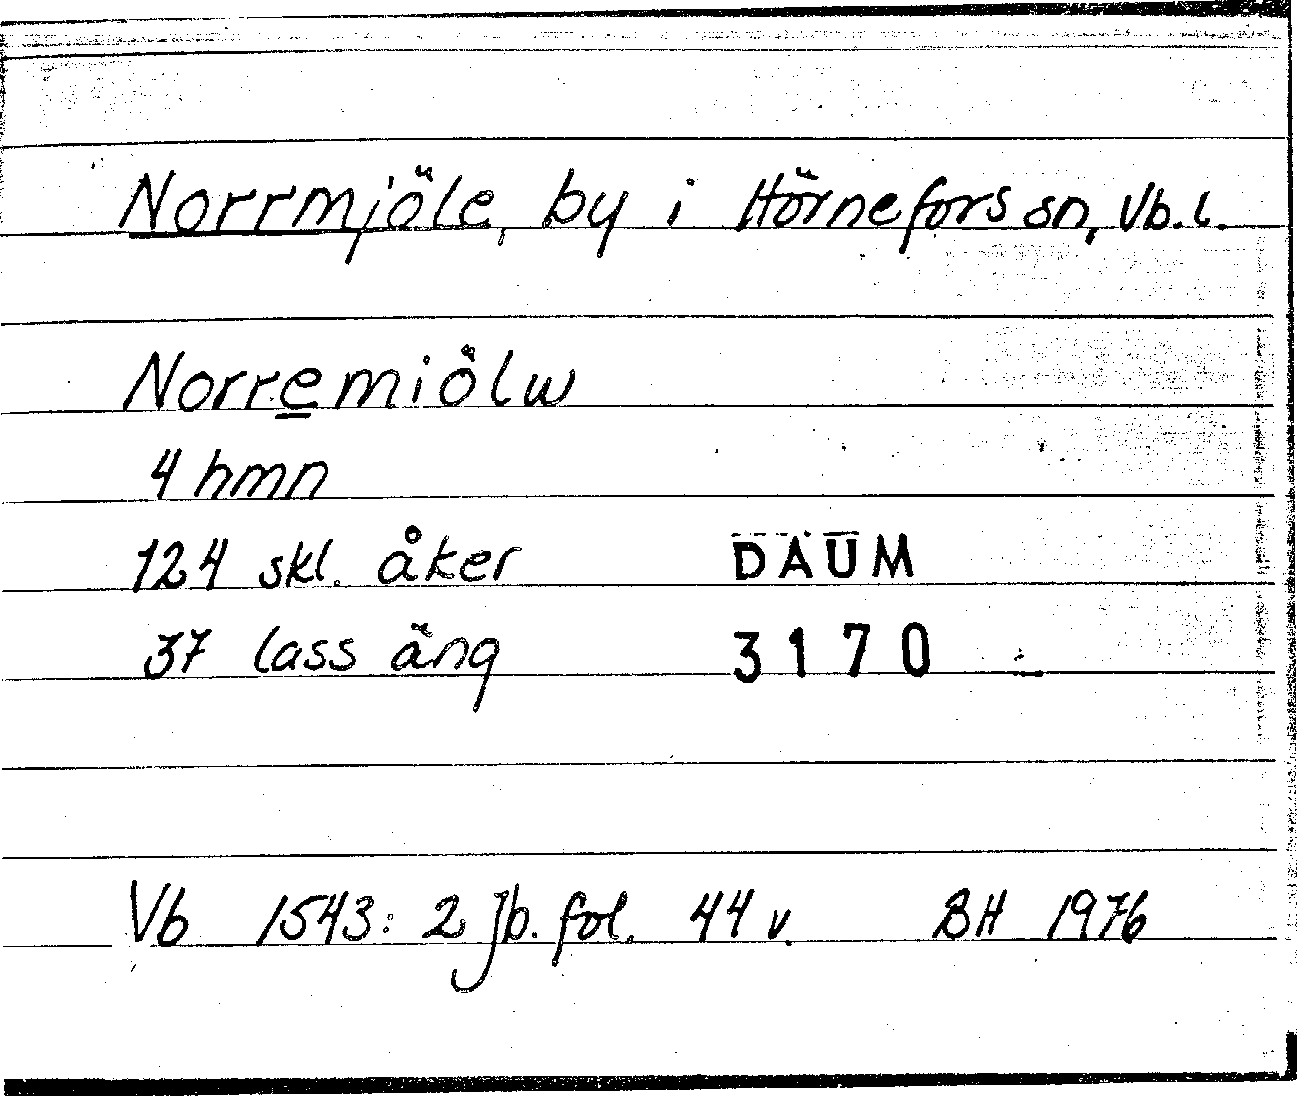 Norrmjöle, by i Hörnefors sn, Vb.l.
Norremiölw
4 hmn
124 skl. åker DAUM
37 lass äng 3170
Vb 1543: 2 Jb. fol. 44 v. BH 1976